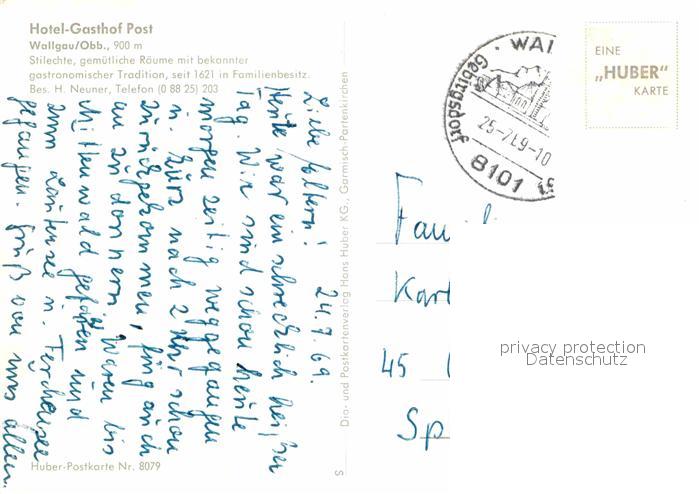 Hotel-Gasthof Post
Wallgau/Obb., 900 m
Stilechte, gemütliche Räume mit bekannter
gastronomischer Tradition, seit 1621 in Familienbesitz.
Bes. H. Neuner, Telefon (0 88 25) 203
24.7.69.
Liebe Eltern!
Heute war ein schrecklich heißer
Tag. Wir sind schon heute
morgen zeitig weggegangen
u. kurz nach 2 Uhr schon
zurückgekommen, fing auch
an zu donnern. Waren bis
Mittenwald gefahren und
zum Lautersee u. Ferchensee
gegangen. Gruß von uns allen.
Huber-Postkarte Nr. 8079
Dia- und Postkartenverlag Hans Huber KG., Garmisch-Partenkirchen
S
WAL
Gebirgsdorf
25-7.69-10
8101
EINE
„HUBER"
KARTE
Fam
Karl
45
Sp
privacy protection
Datenschutz